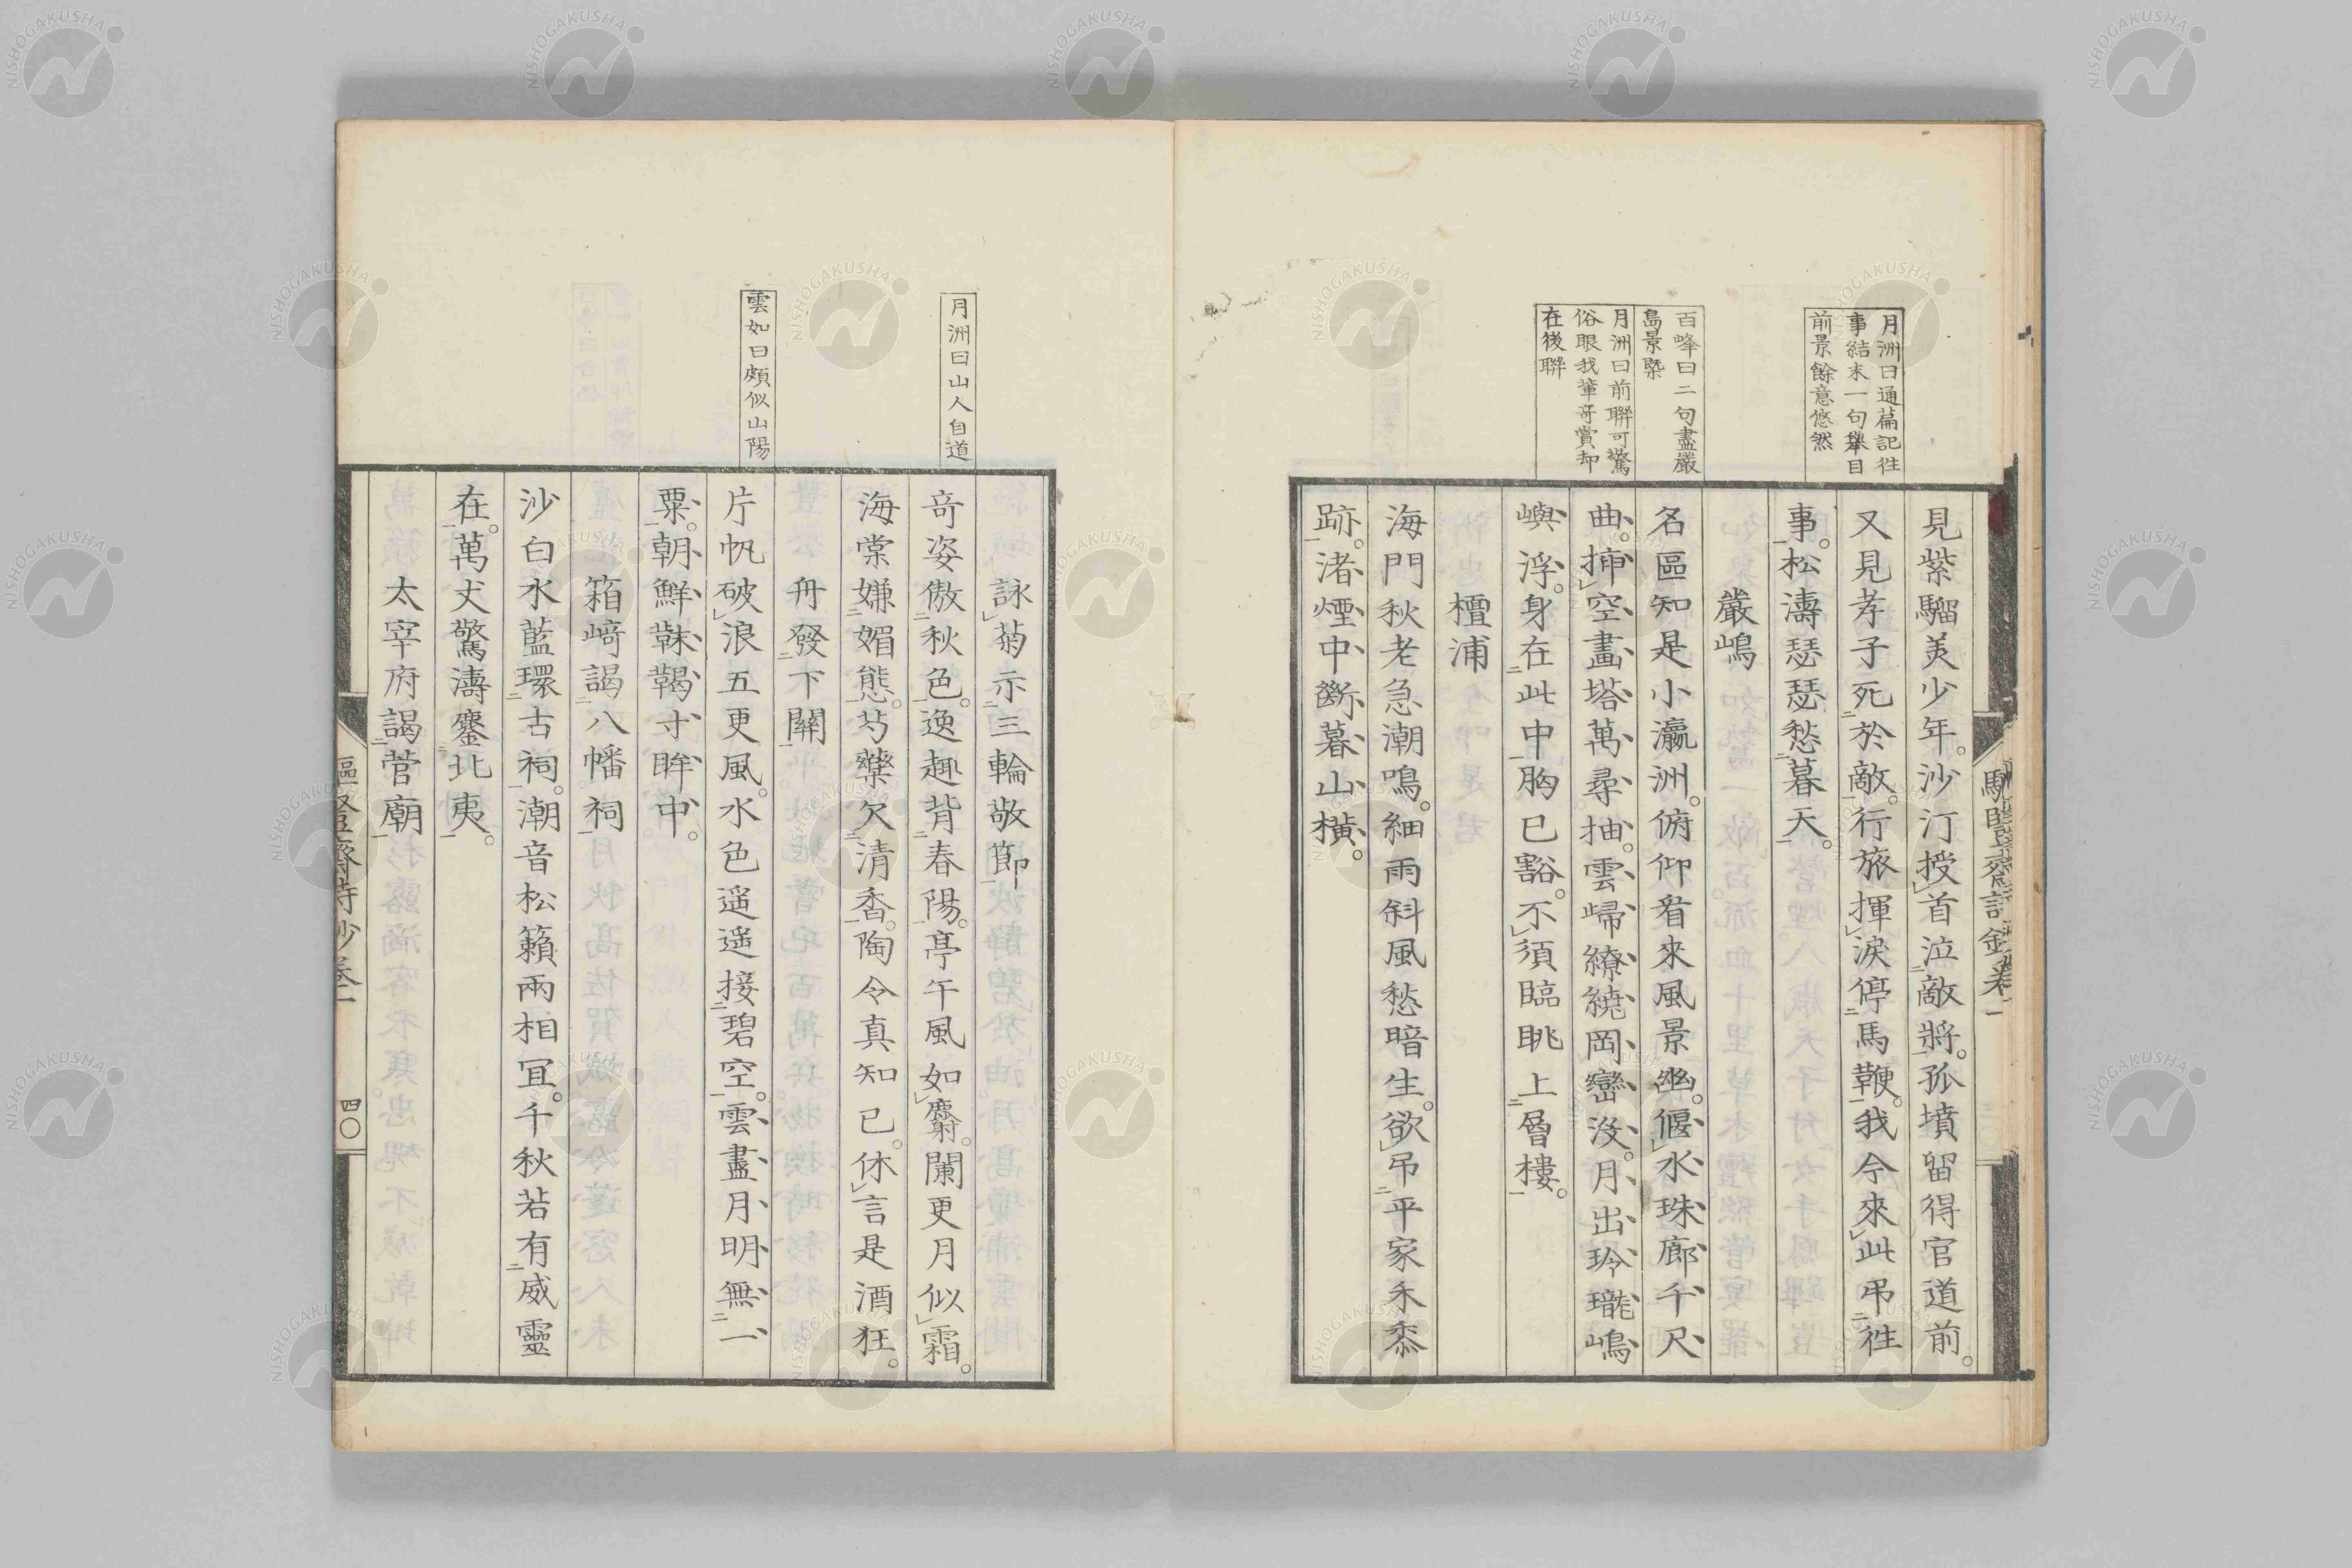 月洲曰通篇記徃
事結末一句舉目
前景餘意悠然
百峰曰二句盡嚴
島景槩
月洲曰前聯可驚
俗眼我輩奇賞却
在後聯
見紫騮美少年。沙汀授首泣敵將。孤墳留得官道前。
又見孝子死於敵。行旅揮淚停馬鞭。我今來此吊徃
事。松濤瑟瑟愁暮天。
嚴嶋
名區知是小瀛洲。俯仰看來風景幽。偃水珠廊千尺
曲。揷空畫塔萬尋抽。雲歸繚繞岡巒沒。月出玲瓏嶋
嶼浮。身在此中胸已豁。不須臨眺上層樓。
檀浦
海門秋老急潮鳴。細雨斜風愁暗生。欲吊平家禾黍
跡。渚煙中斷暮山横。
月洲曰山人自道
雲如曰頗似山陽
詠菊示三輪敬節
奇姿傲秋色。逸趣背春陽。亭午風如麝。闌更月似霜。
海棠嫌媚態。芍藥欠清香。陶令真知己。休言是酒狂。
舟發下關
片帆破浪五更風。水色遥遥接碧空。雲盡月明無一
粟。朝鮮靺鞨寸眸中。
箱﨑謁八幡祠
沙白水藍環古祠。潮音松籟兩相冝。千秋若有威靈
在。萬丈驚濤鏖北夷。
太宰府謁菅廟
四〇
NISHOGAKUSHA